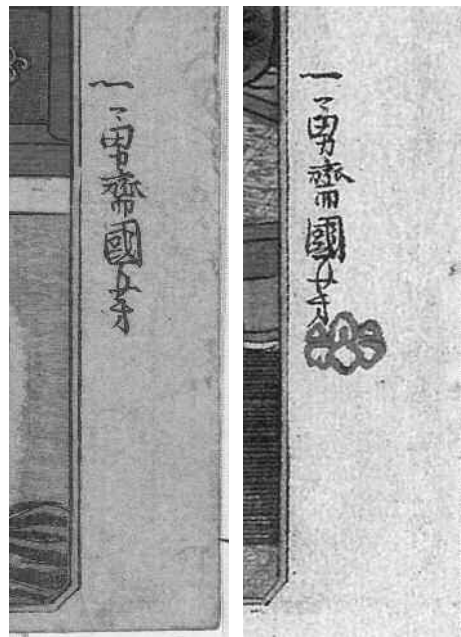 一勇齋國芳
一勇齋國芳